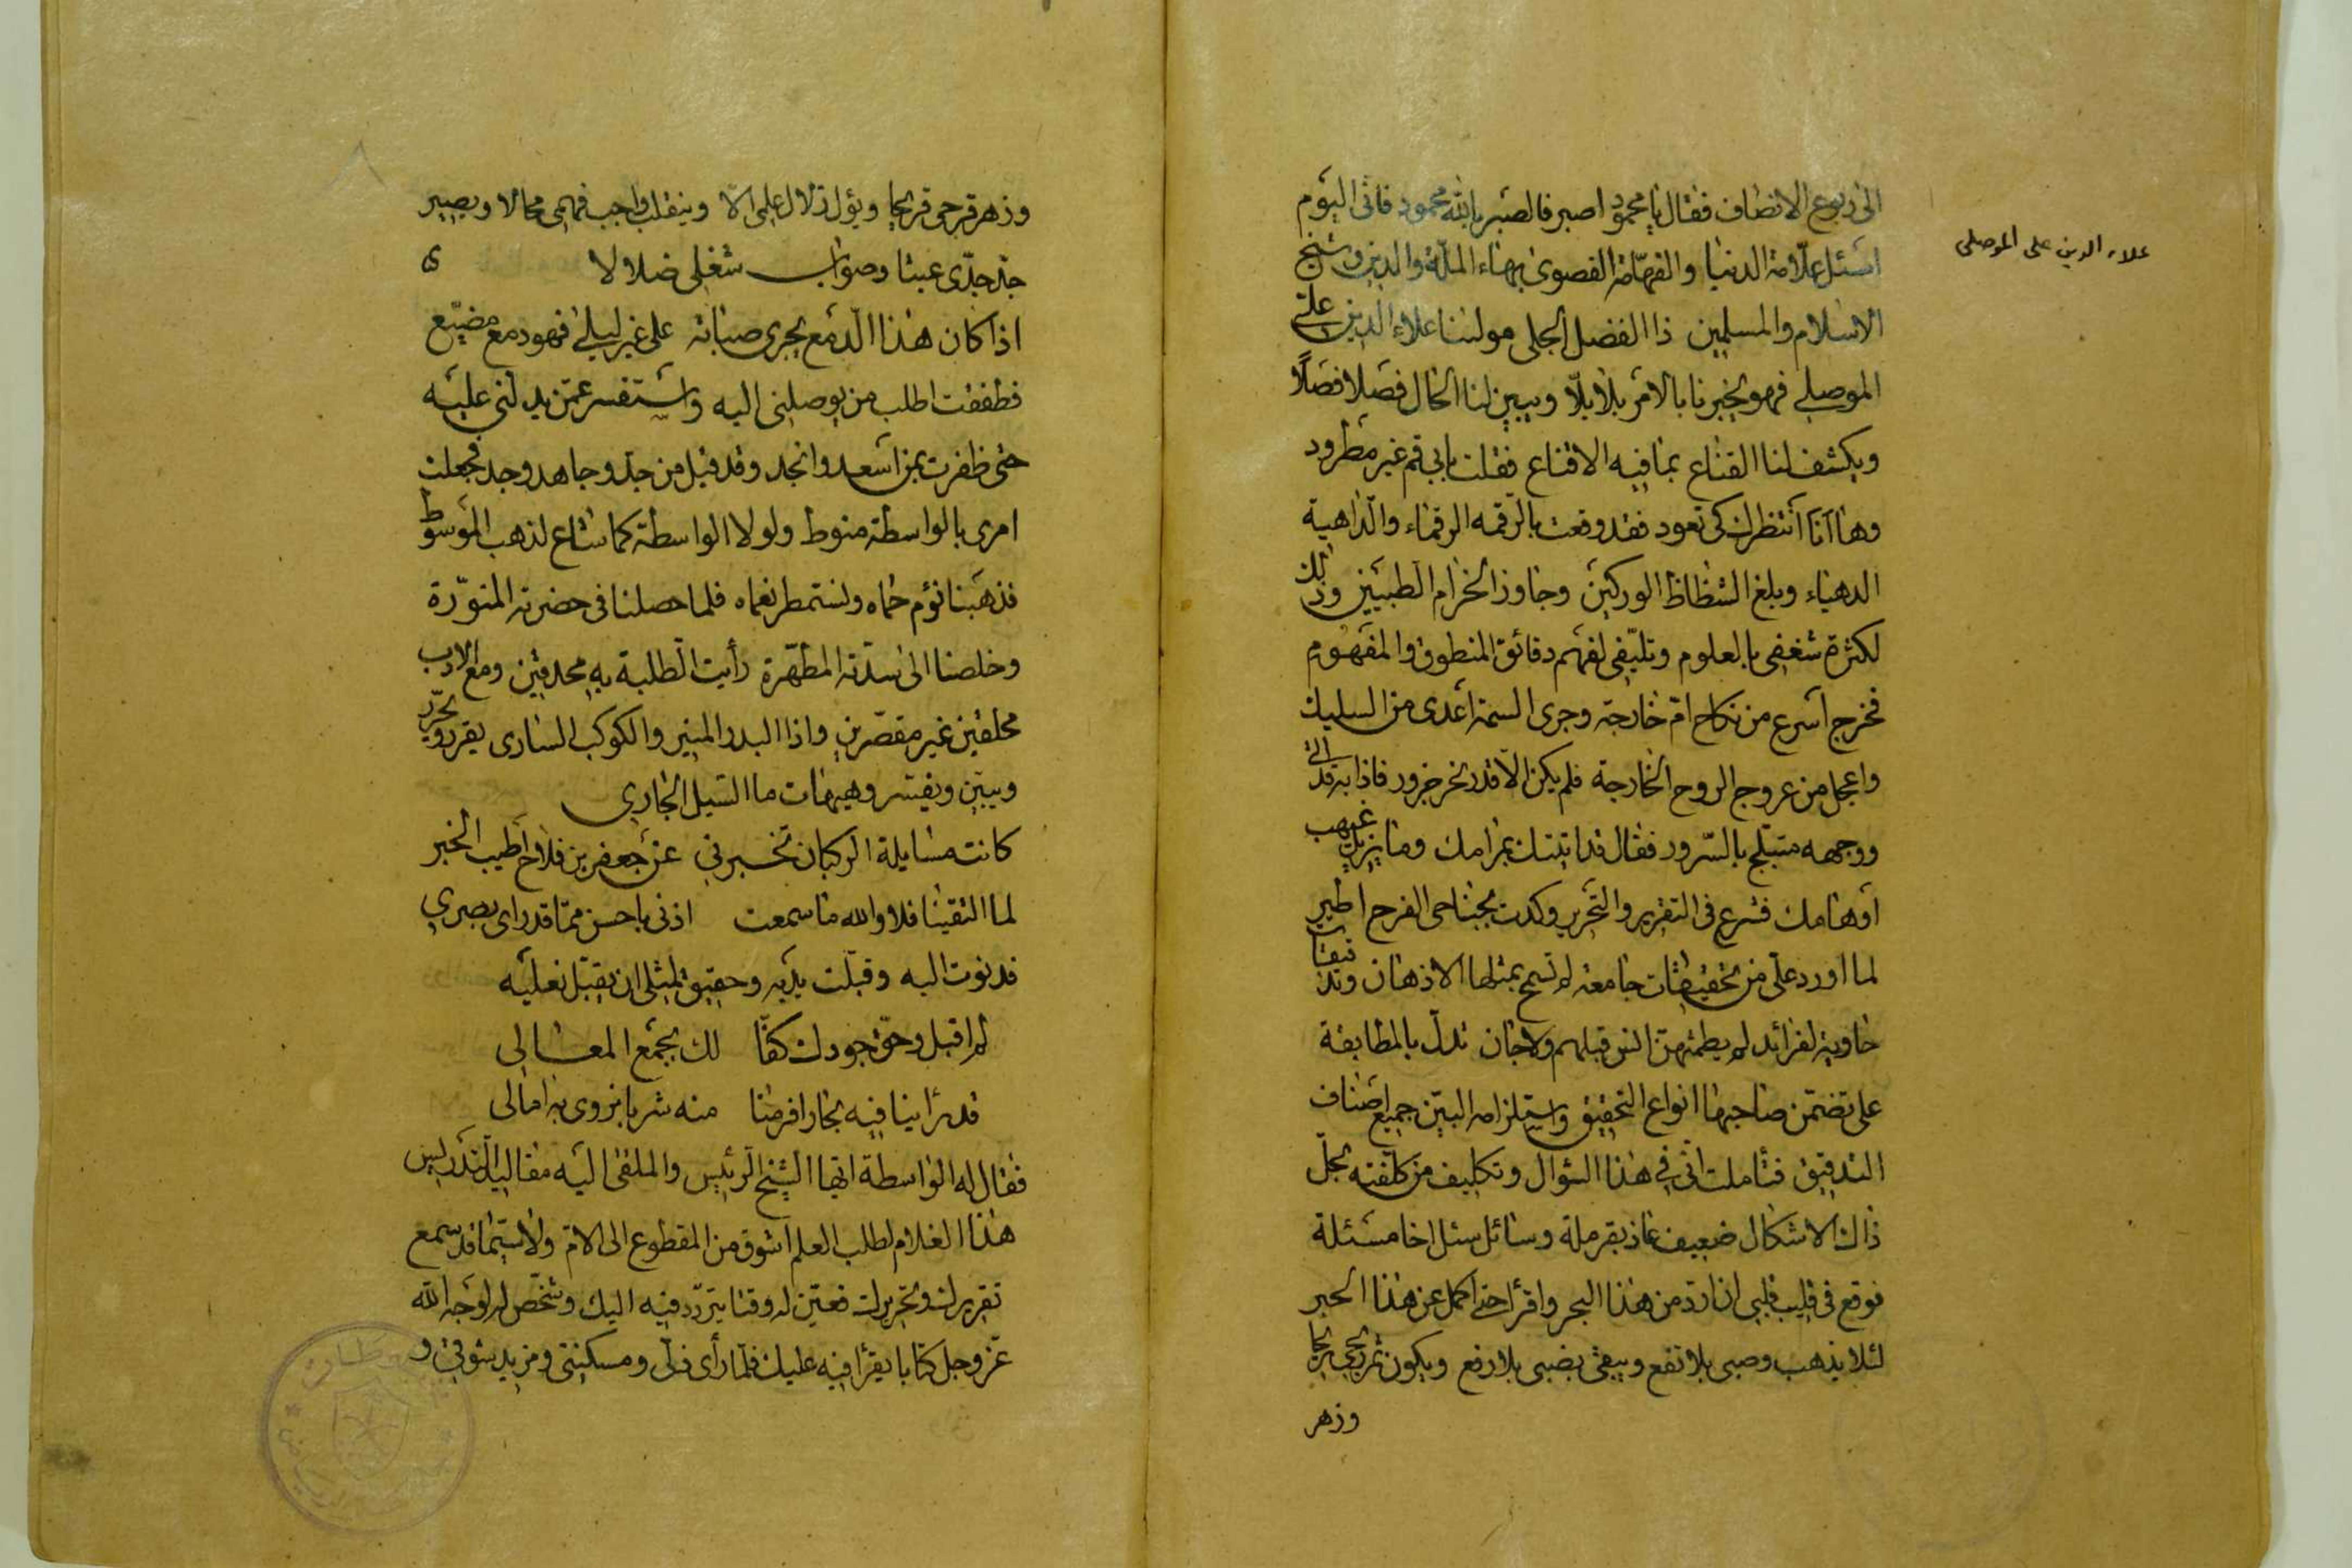 الى ربوع الانصاف فقال يا محمود اصبر فالصبر يا لله محمود فانى اليوم
اسئل علّامة الدنيا والفهّامة القصوى بهاء الملّة والدين وشيخ
علاء الدين على الموصلى
الاسلام والمسلمين ذا الفضل الجلى مولينا علاء الدين على
الموصلى فهو يخبرنا بالامر بلا بلّا ويبين لنا الحال فصلا فصلًا
ويكشف لنا القناع بما فيه الاقناع فقلت بابى قم غير مطرود
وها انا انتظرك كى تعود فقد وقعت بالرقمه الرقماء والداهية
الدهياء وبلغ الشظاظ الوركين وجاوز الخزام الطبيين وذلك
لكثرة شغفى بالعلوم وتلهّفى لفهم دقائق المنطوق والمفهوم
فخرج اسرع من نكاح امّ خارجة وجرى السمة اعدى من السليك
واعجل من عروج الروح الخارجة فلم يكن الّا قدر نحر جزور فاذا به قد اتى
ووجهه متبلّج بالسّرور فقال قد اتيتك بمرامك وما يزيل غيهب
اوهامك فشرع فى التقرير والتحرير وكدت بجناحى الفرح اطير
لما اورد علّى من تحقيقات جامعة لم تسمح بمثلها الاذهان وتدقيقات
حاوية لفرائد لم يطمثهن انس قبلهم ولا جان تدلّ بالمطابقة
على تضمّن صاحبها انواع التحقيق واستلزامه البيّن جميع اصناف
التدقيق فتأملت انّى فى هذا السؤال وتكليف من كلّفته بحلّ
ذاك الاشكال ضعيف عاذ بقرملة وسائل سئل اخا مسئلة
فوقع فى قليب قلبى ان ارد من هذا البحر واقرأ حتى اكمل عن هذا الحبر
لئلا يذهب وصبى بلا نفع ويبقى بضبى بلا رفع ويكون ثمر
وزهر
وزهر قرحى قريحا ويؤل زلال على الّا وينقلب واجب فهمى محالا ويصير
جدّ جدّى عبثا وصواب شغلى ضلالا
اذا كان هذا الدمع يجرى صبابة على غير ليلى فهو دمع مضيّع
فطفقت اطلب من يوصلنى اليه واستفسر عمّن يدلنى عليه
حتى ظفرت بمن اسعد وانجد وقد قيل من جدّ وجاهد وجد فجعلت
امرى بالواسطة منوط ولولا الواسطة كما شاع لذهب الموسوط
فذهبنا نؤم حماه ونستمطر نعماه فلما حصلنا فى حضرته المنوّرة
وخلصنا الى سدّته المطهّرة رأيت الطلبة به محدقين ومع الادب
محلقين غير مقصّرين واذا البدر المنير والكوكب السارى يقرر ويحرّر
ويبيّن ويفسّر وهيهات ما السيل الجارى
كانت مسايلة الركبان تخبرنى عن جعفر بن فلاح اطيب الخبر
لما التقينا فلا والله ما سمعت اذنى باحسن ممّا قد راى بصرى
فدنوت اليه وقبّلت يديه وحقيق لمثلى ان يقبّل نعليه
لم اقبل وحقّ جودك كفّا لك بجمع المعالى
قد رأينا فيه بحارا فرمنا منه شربا نروى به امالى
فقال له الواسطة ايها الشيخ الرئيس والملقى اليه مقاليد التدريس
هذا الغلام لطلب العلم اشوق من المقطوع الى الامّ ولا سيّما قد سمع
تقريرك وتحريرك فعيّن له وقتا يتردّد فيه اليك وشخّص له لوجه الله
عزّ وجل كتابا يقرأ فيه عليك فلمّا رأى ذلّى ومسكنتى ومزيد شوقى و